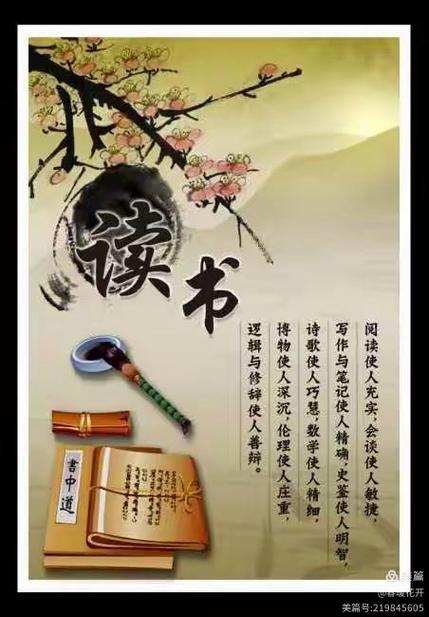 读书
阅读使人充实，会谈使人敏捷，
写作与笔记使人精确，史鉴使人明智，
诗歌使人巧慧，数学使人精细，
博物使人深沉，伦理使人庄重，
逻辑与修辞使人善辩。
书中道
美篇
@春暖花开
美篇号:219845605